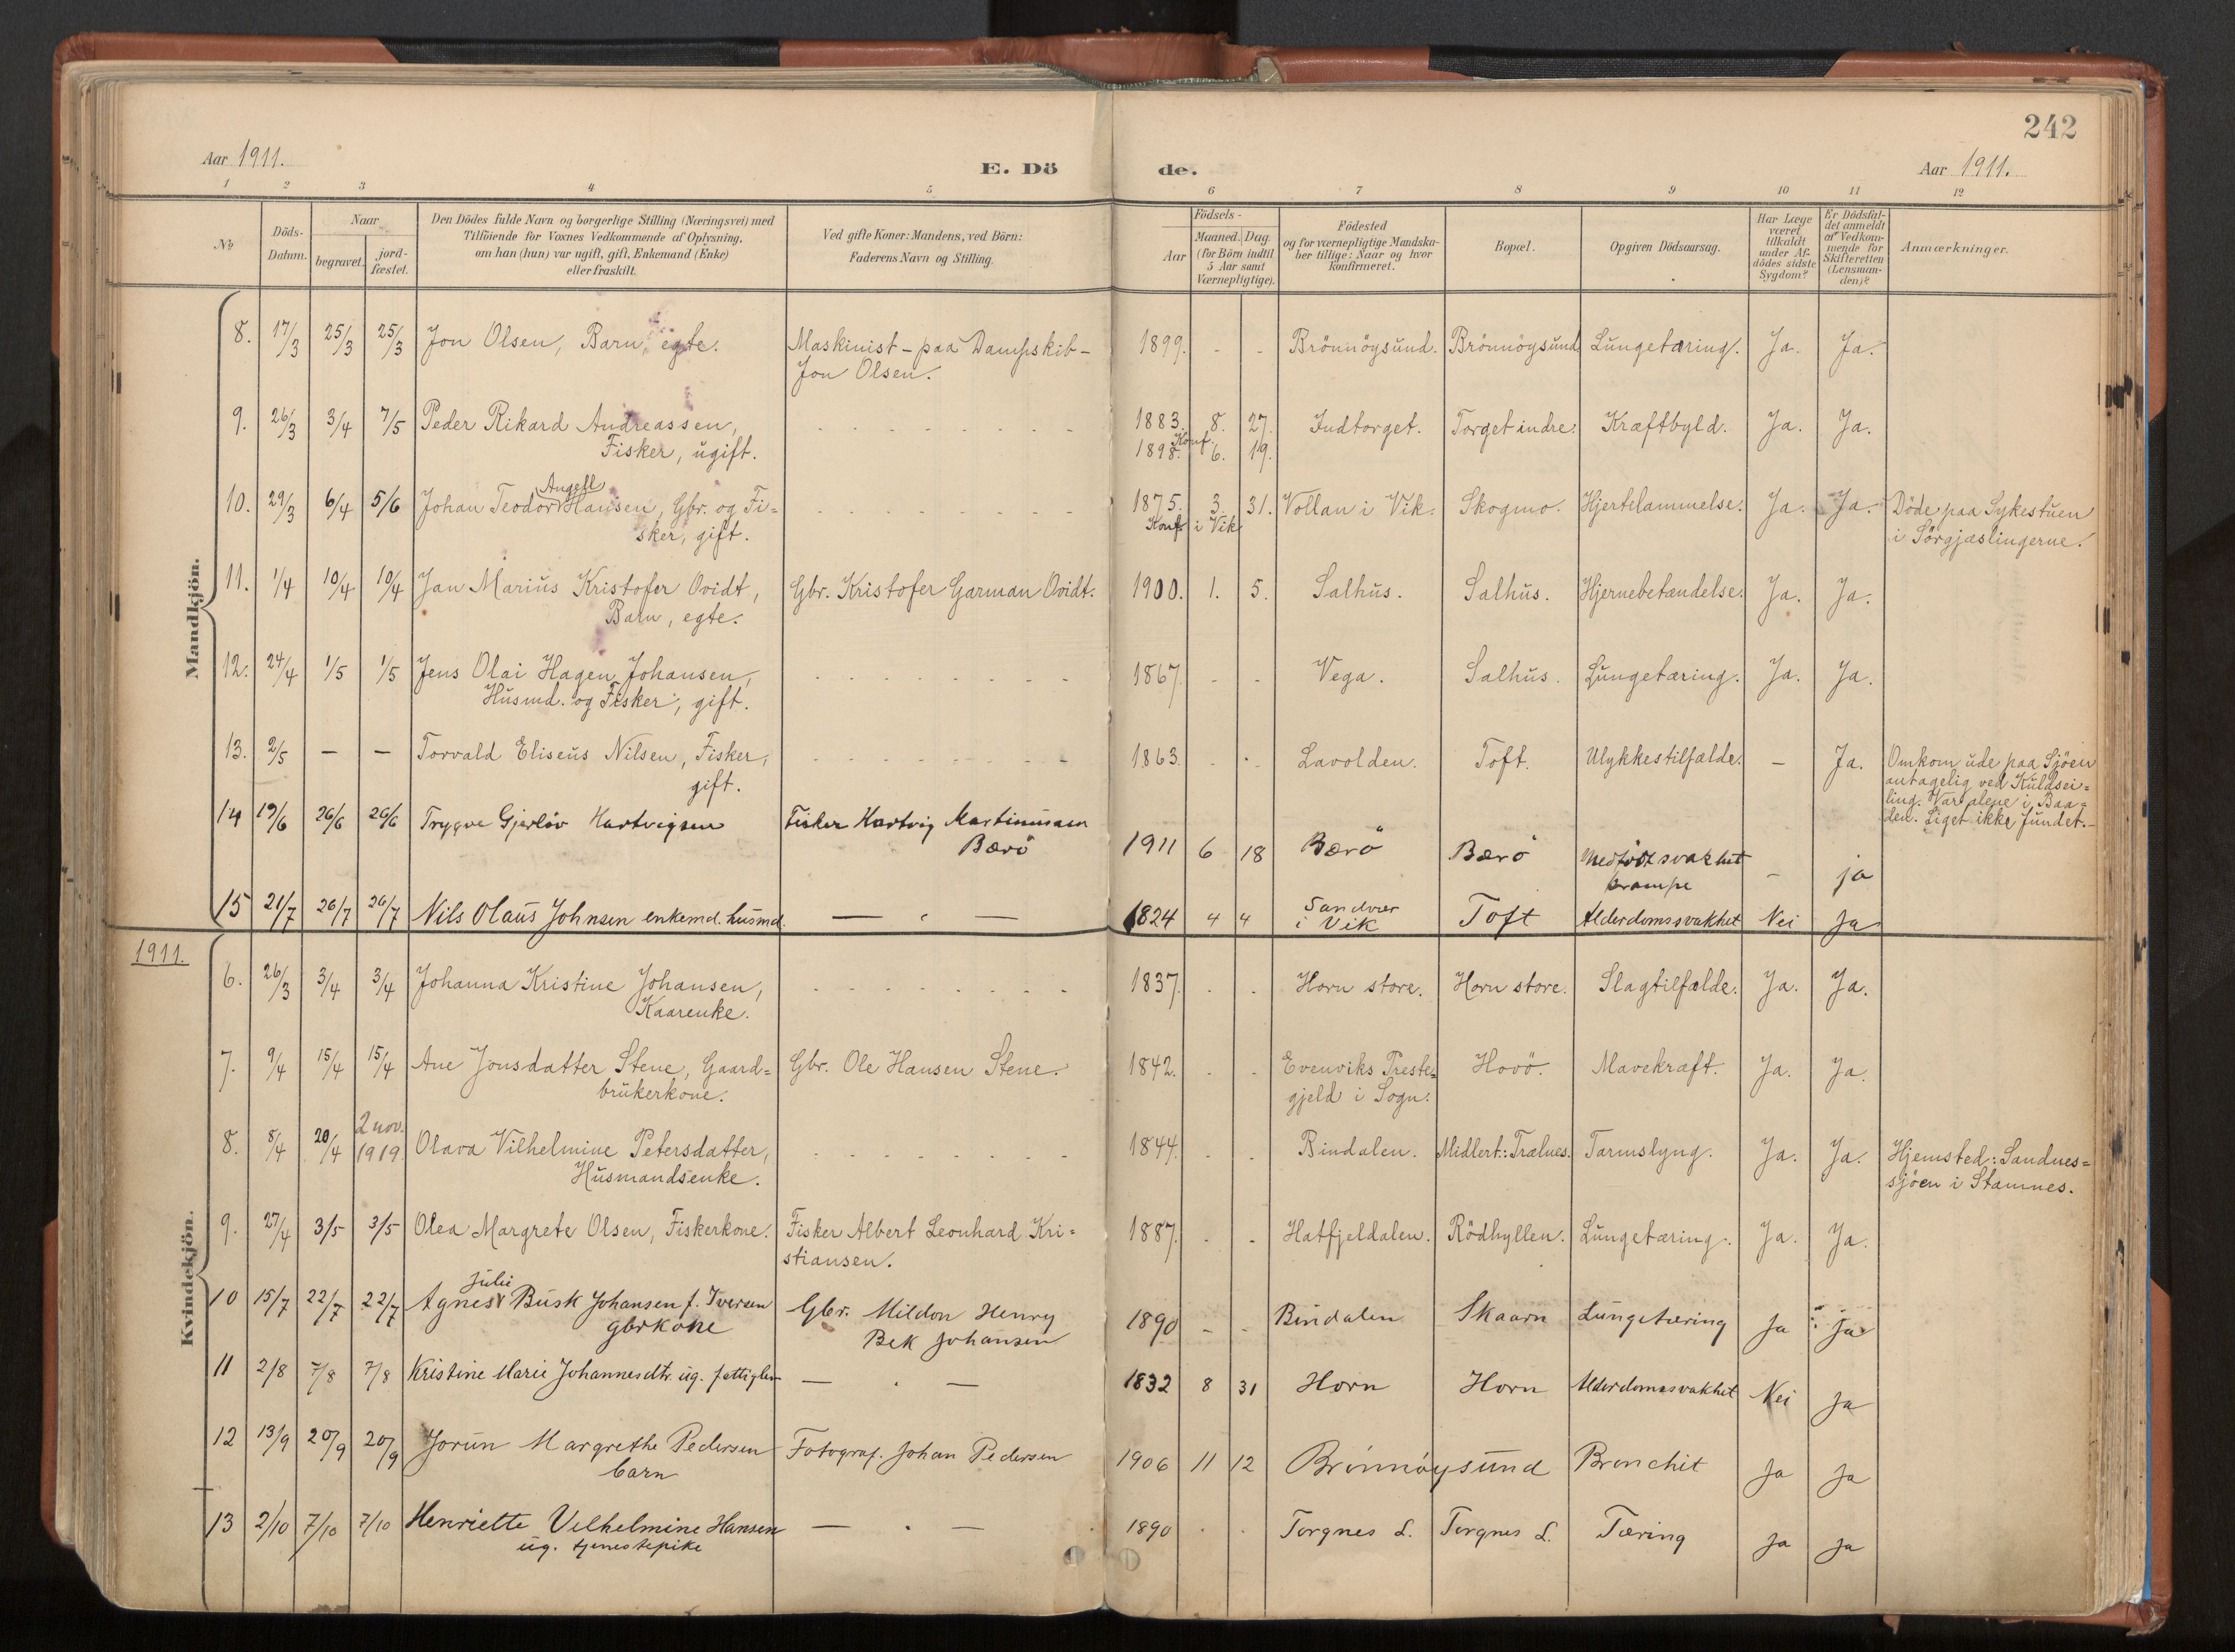 242
Aar 1911.
E. Dö
de.
Aar 1911.
1 2 3 4 5 6 7 8 9 10 11 12
No
Döds-Datum.
Naar
begravet.
jord-fæstet.
Den Dödes fulde Navn og borgerlige Stilling (Næringsvei) med
Tilföiende for Voxnes Vedkommende af Oplysning,
om han (hun) var ugift, gift, Enkemand (Enke)
eller fraskilt.
Ved gifte Koner: Mandens, ved Börn:
Faderens Navn og Stilling.
Födsels-
Aar
Maaned. Dag.
(for Börn indtil
5 Aar samt
Værnepligtige).
Födested
og for værnepligtige Mandska-
ber tillige: Naar og hvor
konfirmeret.
Bopæl.
Opgiven Dödsaarsag.
Har Læge
været
tilkaldt
under Af-
dödes sidste
Sygdom?
Er Dödsfal-
det anmeldt
af Vedkom-
mende for
Skifteretten
(Lensman-
den)?
Anmærkninger.
Mandkjön.
8. 17/3 25/3 25/3 Jon Olsen, Barn, egte. Maskinist - paa Dampskib - 1899. - - Brönnöysund. Brönnöysund Lungetæring. Ja. Ja.
Jon Olsen.
9. 26/3 3/4 7/5 Peder Rikard Andreassen, 1883. 8. 27. Indtorget. Torget indre. Kræftbyld. Ja. Ja.
Fisker, ugift. 1898. Konf. 6. 19.
Angell
10. 29/3 6/4 5/6 Johan Teodor Hansen, Gbr. og Fi= 1875. 3. 31. Vollan i Vik. Skogmo. Hjertelammelse. Ja. Ja. Döde paa Sykestuen
sker, gift. Konf. i Vik i Sörgjæslingerne.
11. 1/4 10/4 10/4 Jan Marius Kristofer Qvidt, Gbr. Kristofer Garman Qvidt. 1900. 1. 5. Salhus. Salhus. Hjernebetændelse. Ja. Ja.
Barn, egte.
12. 24/4 1/5 1/5 Jens Olai Hagen Johansen, 1867. - - Vega. Salhus. Lungetæring. Ja. Ja.
Husmd. og Fisker, gift.
13. 2/5 — — Torvald Eliseus Nilsen, Fisker, 1863. - - Lavolden. Toft. Ulykkestilfælde. — Ja. Omkom ude paa Sjöen
gift. antagelig ved Kuldsei=
ling. Var alene i Baa=
den. Liget ikke fundet.
14 19/6 26/6 26/6 Trygve Gjerlöv Hartvigsen Fisker Hartvig Martinussen
Bærö 1911 6 18 Bærö Bærö Medfödt svakhet - ja
krampe
15 21/7 26/7 26/7 Nils Olaus Johnsen enkemd. husmd. — " — 1824 4 4 Sandvær i Vik Toft Alderdomssvakhet Nei Ja
1911.
Kvindekjön.
6. 26/3 3/4 3/4 Johanna Kristine Johansen, 1837. - - Horn store. Horn store. Slagtilfælde. Ja. Ja.
Kaarenke.
7. 9/4 15/4 15/4 Ane Jonsdatter Stene, Gaard= Gbr. Ole Hansen Stene. 1842. - - Evenviks Preste= Hovö. Mavekræft. Ja. Ja.
brukerkone. gjeld i Sogn.
8. 8/4 20/4 2 nov. 1919. Olava Vilhelmine Petersdatter, 1844. - - Bindalen. Midlert.: Trælnes. Tarmslyng. Ja. Ja. Hjemsted: Sandnes=
Husmandsenke. sjöen i Stamnes.
9. 27/4 3/5 3/5 Olea Margrete Olsen, Fiskerkone. Fisker Albert Leonhard Kri= 1887. - - Hatfjeldalen. Rödhyllen. Lungetæring. Ja. Ja.
stiansen.
Julie
10 15/7 22/7 22/7 Agnes Busk Johansen f. Iversen Gbr. Mildon Henry 1890 - - Bindalen Skaarn Lungetæring Ja Ja
gbrkone Bek Johansen
11 2/8 7/8 7/8 Kristine Marie Johannesdtr. ug. fattiglem — " — 1832 8 31 Horn Horn Alderdomssvakhet Nei Ja
12 13/9 20/9 20/9 Jorun Margrethe Pedersen Fotograf. Johan Pedersen 1906 11 12 Brönnöysund Bronchit Ja Ja
barn
13 2/10 7/10 7/10 Henriette Vilhelmine Hansen — " — 1890 - - Torgnes L. Torgnes L. Tæring Ja Ja
ug. tjenestepike